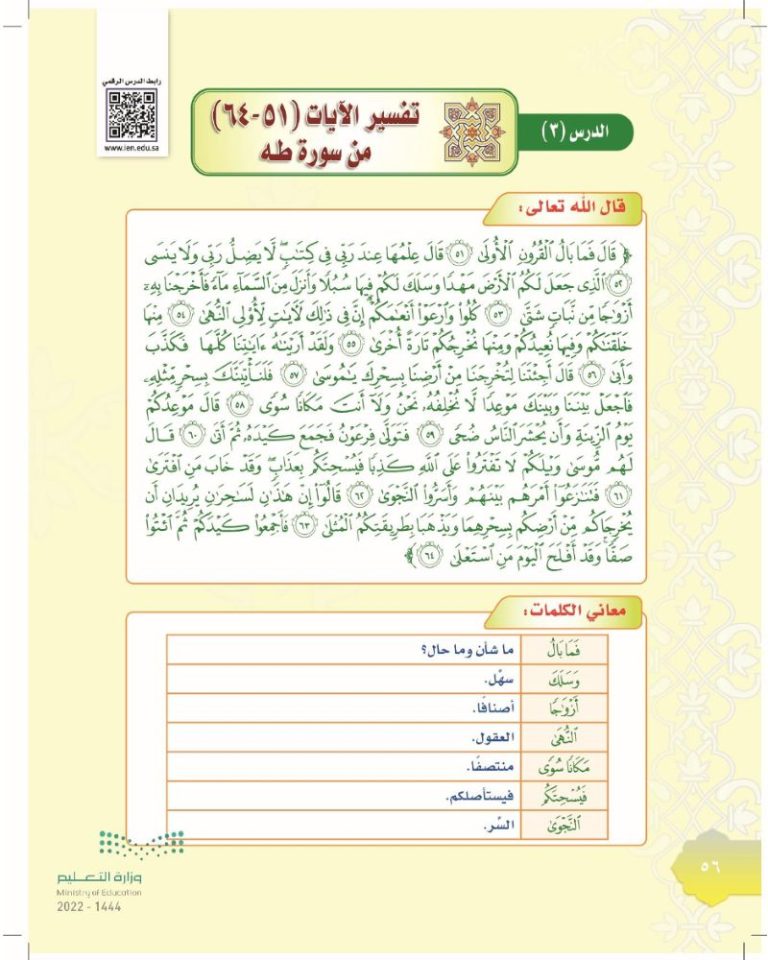 رابط الدرس الرقمي
www.ien.edu.sa
الدرس (٣)
تفسير الآيات (٥١-٦٤)
من سورة طه
قال الله تعالى:
﴿ قَالَ فَمَا بَالُ الْقُرُونِ الْأُولَىٰ ٥١ قَالَ عِلْمُهَا عِندَ رَبِّي فِي كِتَٰبٍ لَّا يَضِلُّ رَبِّي وَلَا يَنسَى
٥٢ الَّذِي جَعَلَ لَكُمُ الْأَرْضَ مَهْدًا وَسَلَكَ لَكُمْ فِيهَا سُبُلًا وَأَنزَلَ مِنَ السَّمَاءِ مَاءً فَأَخْرَجْنَا بِهِۦ
أَزْوَٰجًا مِّن نَّبَاتٍ شَتَّىٰ ٥٣ كُلُوا وَارْعَوْا أَنْعَٰمَكُمْ إِنَّ فِي ذَٰلِكَ لَآيَٰتٍ لِّأُولِي النُّهَىٰ ٥٤ مِنْهَا
خَلَقْنَٰكُمْ وَفِيهَا نُعِيدُكُمْ وَمِنْهَا نُخْرِجُكُمْ تَارَةً أُخْرَىٰ ٥٥ وَلَقَدْ أَرَيْنَٰهُ ءَايَٰتِنَا كُلَّهَا فَكَذَّبَ
وَأَبَىٰ ٥٦ قَالَ أَجِئْتَنَا لِتُخْرِجَنَا مِنْ أَرْضِنَا بِسِحْرِكَ يَٰمُوسَىٰ ٥٧ فَلَنَأْتِيَنَّكَ بِسِحْرٍ مِّثْلِهِۦ
فَاجْعَلْ بَيْنَنَا وَبَيْنَكَ مَوْعِدًا لَّا نُخْلِفُهُۥ نَحْنُ وَلَا أَنتَ مَكَانًا سُوًى ٥٨ قَالَ مَوْعِدُكُمْ
يَوْمُ الزِّينَةِ وَأَن يُحْشَرَ النَّاسُ ضُحًى ٥٩ فَتَوَلَّىٰ فِرْعَوْنُ فَجَمَعَ كَيْدَهُۥ ثُمَّ أَتَىٰ ٦٠ قَالَ
لَهُم مُّوسَىٰ وَيْلَكُمْ لَا تَفْتَرُوا عَلَى اللَّهِ كَذِبًا فَيُسْحِتَكُم بِعَذَابٍ وَقَدْ خَابَ مَنِ افْتَرَىٰ
٦١ فَتَنَٰزَعُوا أَمْرَهُم بَيْنَهُمْ وَأَسَرُّوا النَّجْوَىٰ ٦٢ قَالُوا إِنْ هَٰذَٰنِ لَسَٰحِرَٰنِ يُرِيدَانِ أَن
يُخْرِجَاكُم مِّنْ أَرْضِكُم بِسِحْرِهِمَا وَيَذْهَبَا بِطَرِيقَتِكُمُ الْمُثْلَىٰ ٦٣ فَأَجْمِعُوا كَيْدَكُمْ ثُمَّ ائْتُوا
صَفًّا وَقَدْ أَفْلَحَ الْيَوْمَ مَنِ اسْتَعْلَىٰ ٦٤ ﴾
معاني الكلمات:
فَمَا بَالُ ما شأن وما حال؟
وَسَلَكَ سهّل.
أَزْوَٰجًا أصنافًا.
النُّهَىٰ العقول.
مَكَانًا سُوًى منتصفًا.
فَيُسْحِتَكُم فيستأصلكم.
النَّجْوَىٰ السِّر.
وزارة التعليم
Ministry of Education
2022 - 1444
٥٦